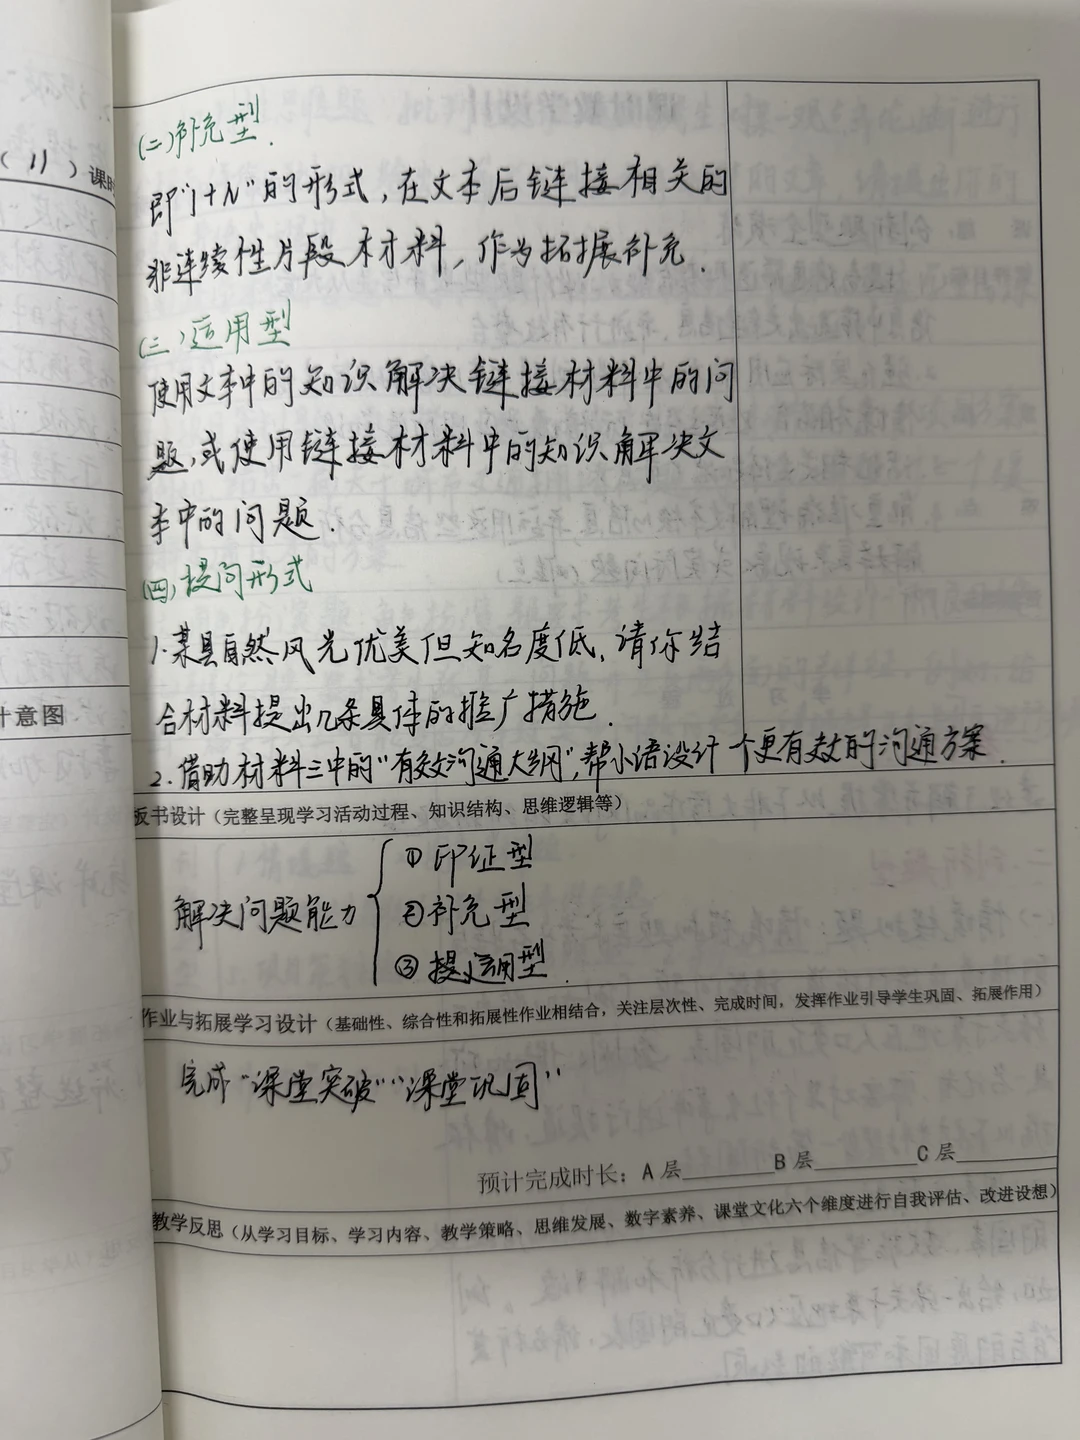 (二)补充型.
即"1+N"的形式,在文本后链接相关的
非连续性片段材料,作为拓展补充.
(三)适用型
使用文本中的知识解决链接材料中的问
题,或使用链接材料中的知识解决文
本中的问题.
(四)提问形式
1.某县自然风光优美但知名度低,请你结
合材料提出几条具体的推广措施.
2.借助材料三中的"有效沟通大纲",帮小语设计一个更有效的沟通方案.
板书设计（完整呈现学习活动过程、知识结构、思维逻辑等）
解决问题能力
①印证型
②补充型
③适用型.
作业与拓展学习设计（基础性、综合性和拓展性作业相结合，关注层次性、完成时间，发挥作业引导学生巩固、拓展作用）
完成"课堂突破""课堂巩固"
预计完成时长：A层______B层______C层______
教学反思（从学习目标、学习内容、教学策略、思维发展、数字素养、课堂文化六个维度进行自我评估、改进设想）
（11）课时
计意图